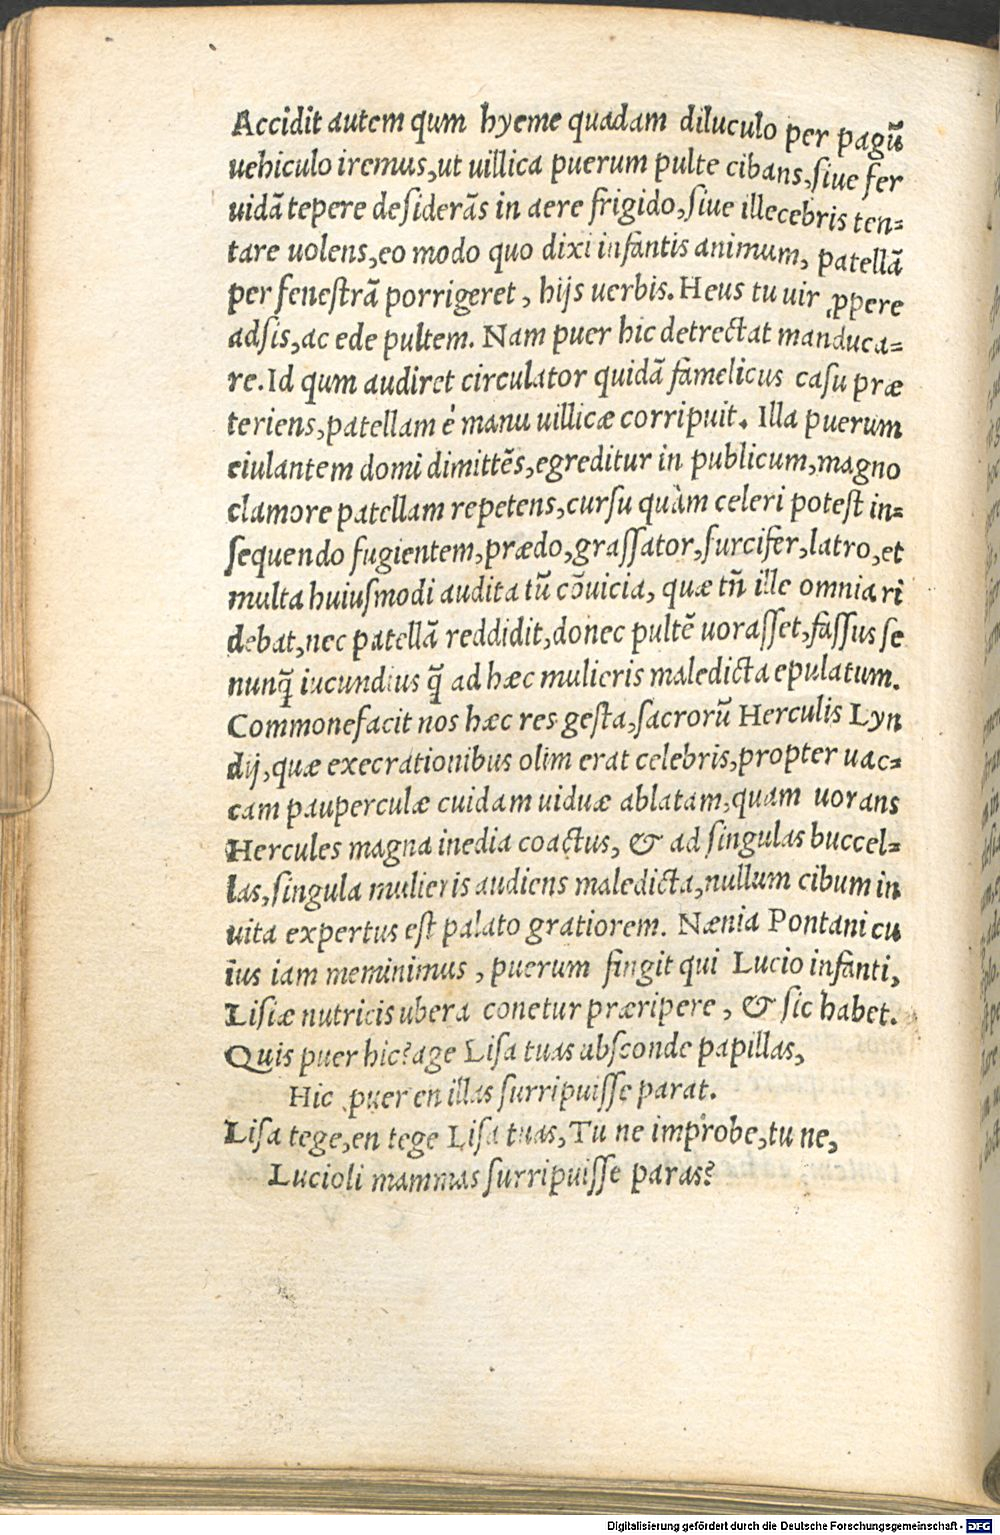 Accidit autem qum hyeme quadam diluculo per pagũ
uehiculo iremus, ut uillica puerum pulte cibans, siue fer
uidã tepere desiderãs in aere frigido, siue illecebris ten-
tare uolens, eo modo quo dixi infantis animum, patellã
per fenestrã porrigeret, hijs uerbis. Heus tu uir ꝓpere
adsis, ac ede pultem. Nam puer hic detrectat manduca-
re. Id qum audiret circulator quidã famelicus casu præ
teriens, patellam è manu uillicæ corripuit. Illa puerum
eiulantem domi dimittẽs, egreditur in publicum, magno
clamore patellam repetens, cursu quàm celeri potest in-
sequendo fugientem, prædo, grassator, furcifer, latro, et
multa huiusmodi audita tũ cõuicia, quæ tñ ille omnia ri
debat, nec patellã reddidit, donec pultẽ uorasset, fassus se
nunq̃ iucundius q̃ ad hæc mulieris maledicta epulatum.
Commonefacit nos hæc res gesta, sacrorũ Herculis Lyn
dij, quæ execrationibus olim erat celebris, propter uac-
cam pauperculæ cuidam uiduæ ablatam, quam uorans
Hercules magna inedia coactus, & ad singulas buccel-
las, singula mulieris audiens maledicta, nullum cibum in
uita expertus est palato gratiorem. Nænia Pontani cu
ius iam meminimus, puerum fingit qui Lucio infanti,
Lisiæ nutricis ubera conetur præripere, & sic habet.
Quis puer hic? age Lisa tuas absconde papillas,
Hic puer en illas surripuisse parat.
Lisa tege, en tege Lisa tuas, Tu ne improbe, tu ne,
Lucioli mammas surripuisse paras?
Digitalisierung gefördert durch die Deutsche Forschungsgemeinschaft - DFG